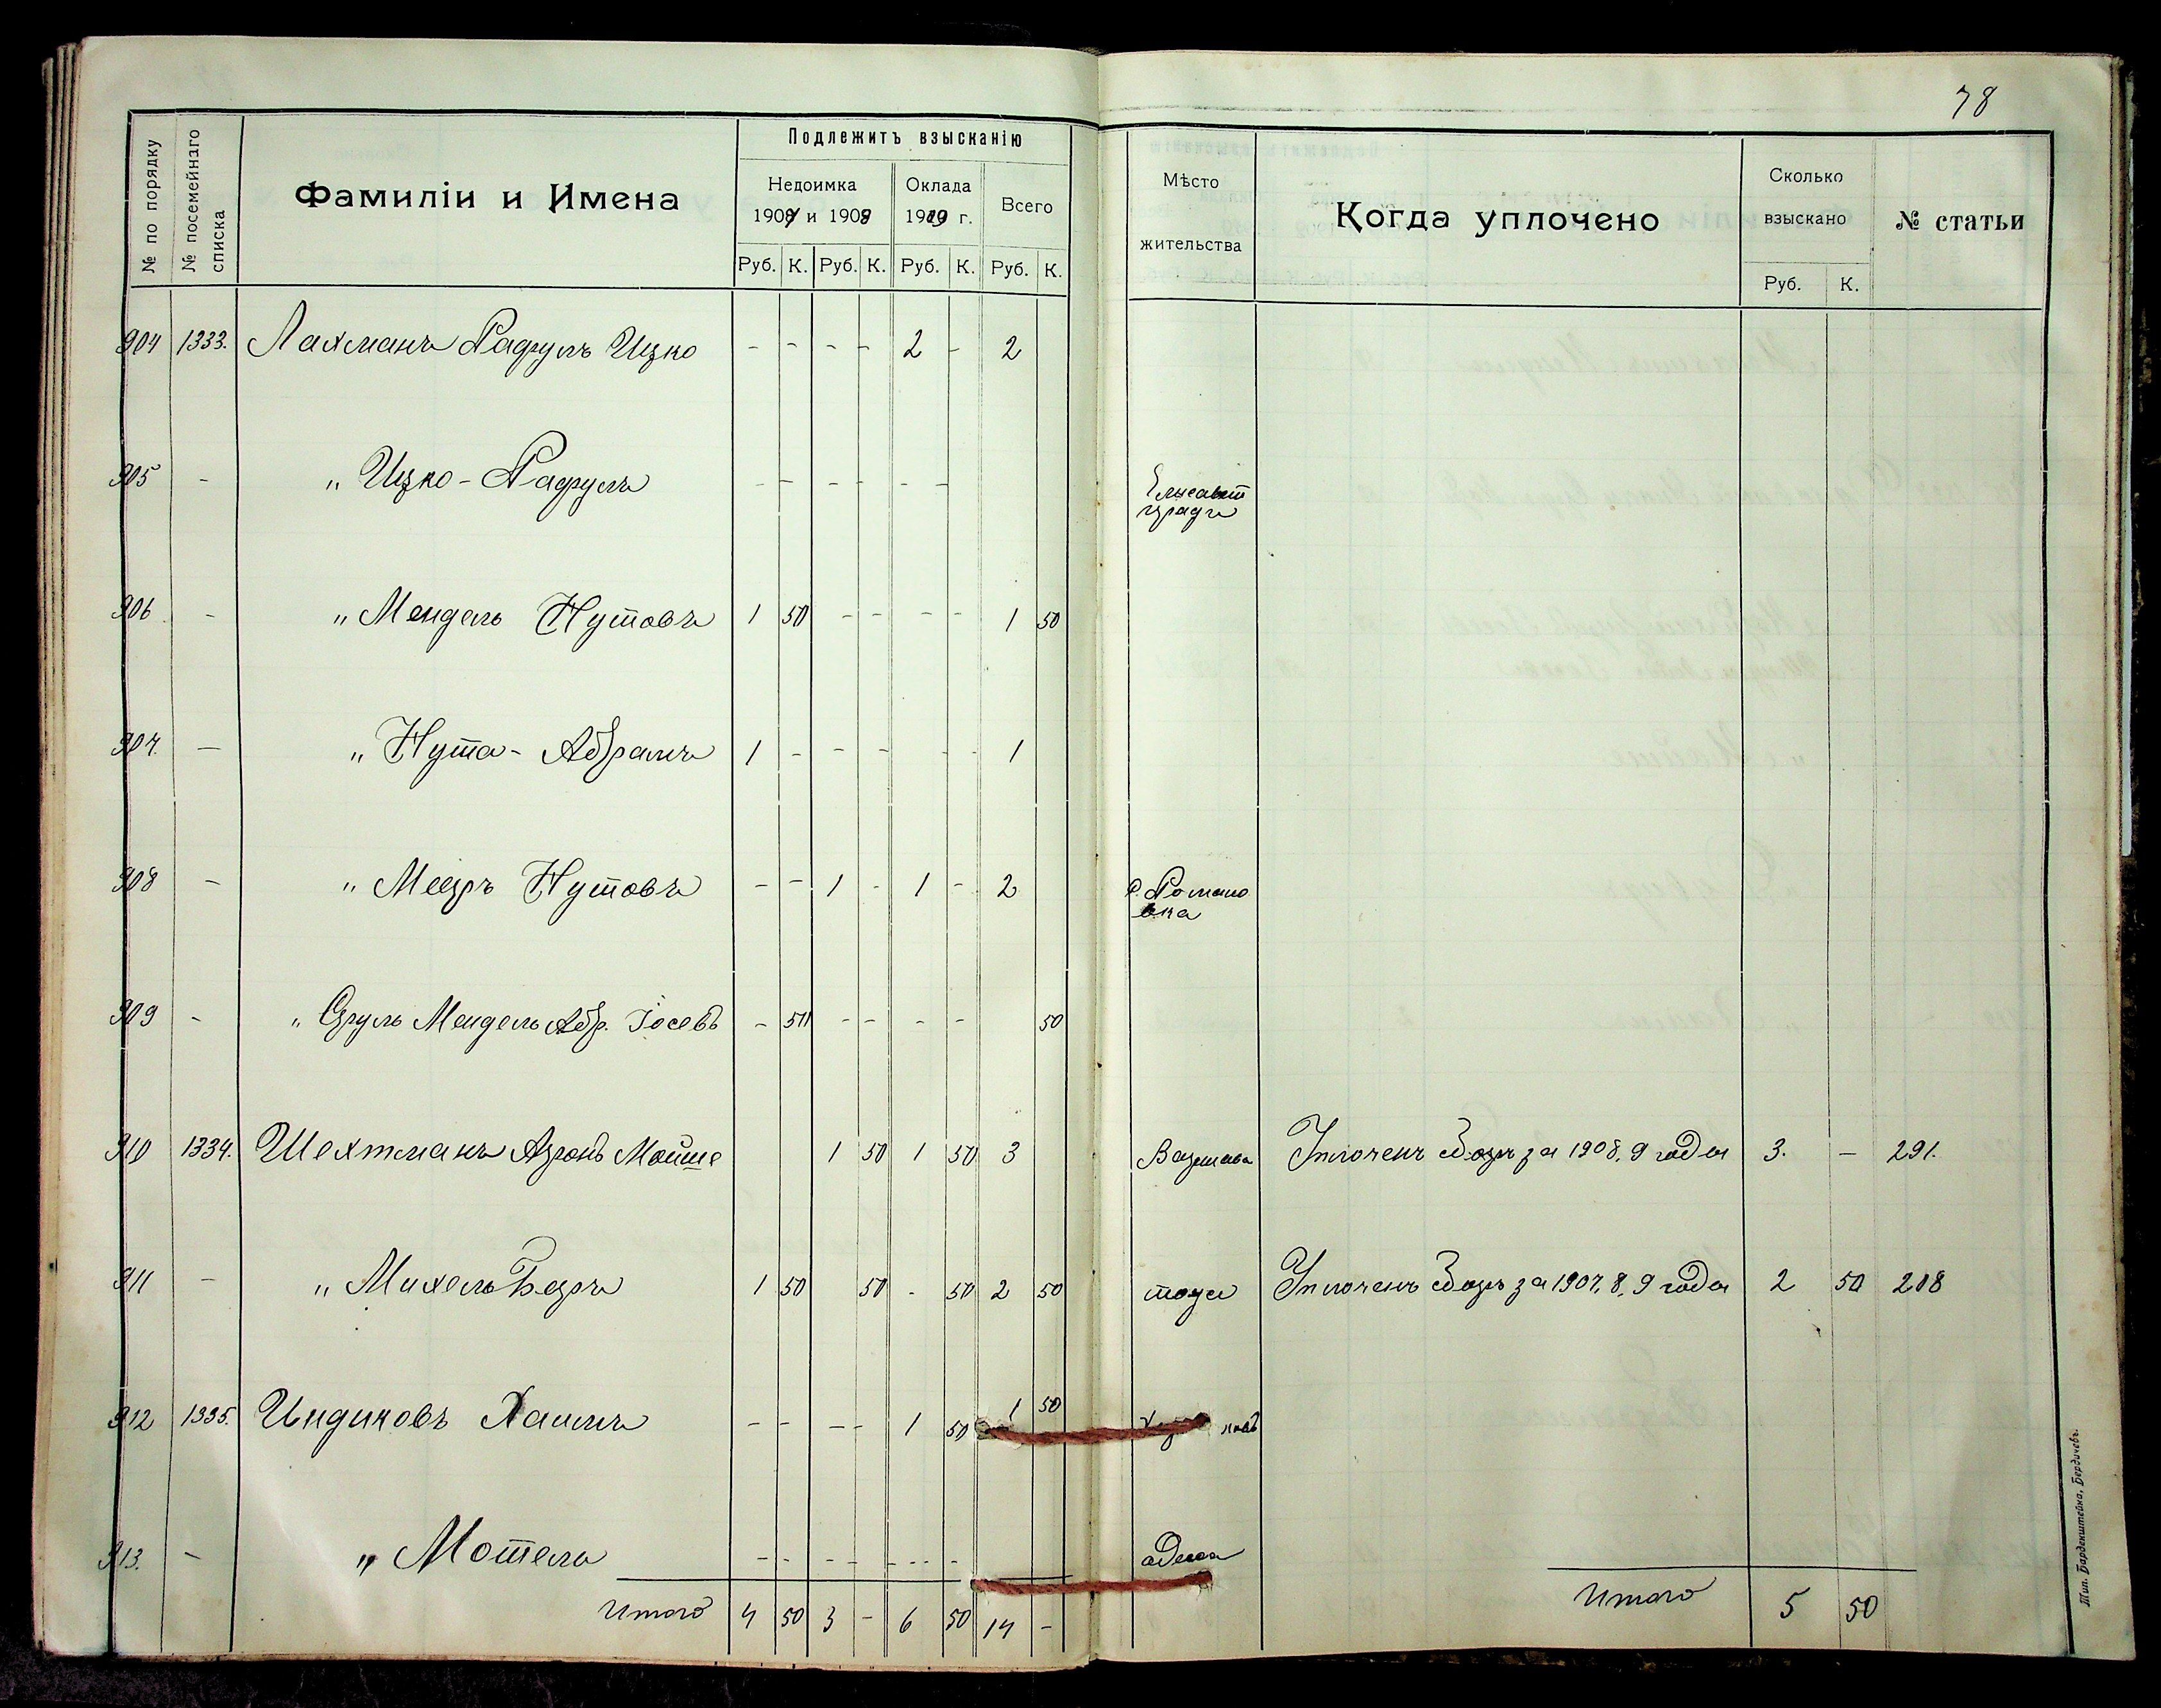 78
№ по порядку
№ посемейнаго списка
Фамиліи и Имена
Подлежитъ взысканію
Недоимка
1907 и 1908
Оклада
1909 г.
Всего
Руб. К. Руб. К. Руб. К. Руб. К.
Мѣсто
жительства
Когда уплочено
Сколько
взыскано
Руб. К.
№ статьи
904 1333. Лахманъ Рафулъ Ицко - - - - 2 - 2
905 - „ Ицко-Рафулъ - - - - - - Елисавет
градъ
906 - „ Мендель Нутовъ 1 50 - - - - 1 50
907. - „ Нута-Абрамъ 1 - - - - - 1
908 - „ Мееръ Нутовъ - - 1 - 1 - 2 Романо
вка
909 - „ Сруль Мендель Абр. Іосевъ - 50 - - - - 50
910 1334. Шехтманъ Аронъ Мойше 1 50 1 50 3 Варшава Уплоченъ сборъ за 1908, 9 года 3. - 291.
911 - „ Михель Беръ 1 50 50 - 50 2 50 тоже Уплоченъ сборъ за 1907, 8, 9 года 2 50 208
912 1335. Индиковъ Хаимъ - - - - 1 50 1 50
913. - „ Мотель - - - - - - - - одесса
Итого 4 50 3 - 6 50 14 - Итого 5 50
Тип. Барденштейна, Бердичевъ.